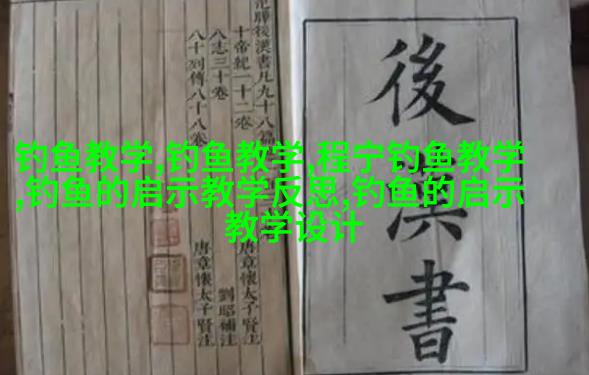 後漢書
范曄後漢書凡九十八篇
十帝紀一十二卷
八志三十卷
八十列傳八十八卷
唐章懷太子賢注
劉昭補注
唐章懷太子賢注
钓鱼教学,钓鱼教学,程宁钓鱼教学
,钓鱼的启示教学反思,钓鱼的启示
教学设计